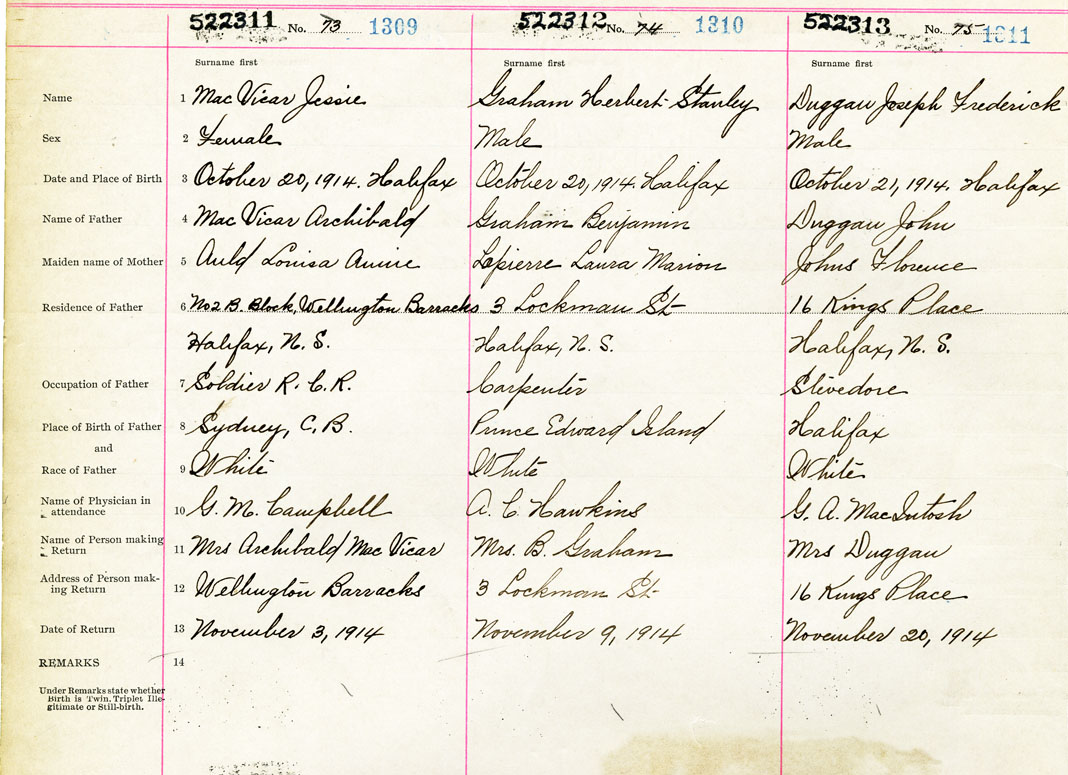 522311 No. 73 1309 522312 No. 74 1310 522313 No. 75 1311
Surname first Surname first Surname first
Name 1 Mac Vicar Jessie Graham Herbert Stanley Duggan Joseph Frederick
Sex 2 Female Male Male
Date and Place of Birth 3 October 20, 1914. Halifax October 20, 1914 Halifax October 21, 1914. Halifax
Name of Father 4 Mac Vicar Archibald Graham Benjamin Duggan John
Maiden name of Mother 5 Auld Louisa Annie Lapierre Laura Marion Johns Florence
Residence of Father 6 No 2 B. Block, Wellington Barracks 3 Lockman St 16 Kings Place
Halifax, N. S. Halifax, N. S. Halifax, N. S.
Occupation of Father 7 Soldier R. C. R. Carpenter Stevedore
Place of Birth of Father 8 Sydney, C. B. Prince Edward Island Halifax
and
Race of Father 9 White White White
Name of Physician in
attendance 10 G. M. Campbell A. C. Hawkins G. A. MacIntosh
Name of Person making
Return 11 Mrs Archibald Mac Vicar Mrs. B. Graham Mrs Duggan
Address of Person mak-
ing Return 12 Wellington Barracks 3 Lockman St 16 Kings Place
Date of Return 13 November 3, 1914 November 9, 1914 November 20, 1914
REMARKS 14
Under Remarks state whether
Birth is Twin, Triplet Ille-
gitimate or Still-birth.